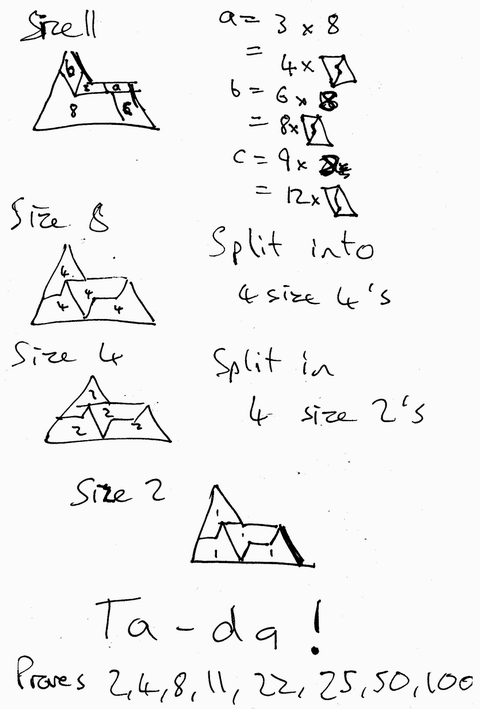 Size 11
b
c
a
8
a = 3 x 8
= 4 x
b = 6 x 8
= 8 x
c = 9 x
= 12 x
Size 8
4
4
4
4
Split into
4 size 4's
Size 4
2
2
2
2
Split in
4 size 2's
Size 2
1
1
1
1
Ta-da!
Proves 2,4,8,11,22,25,50,100